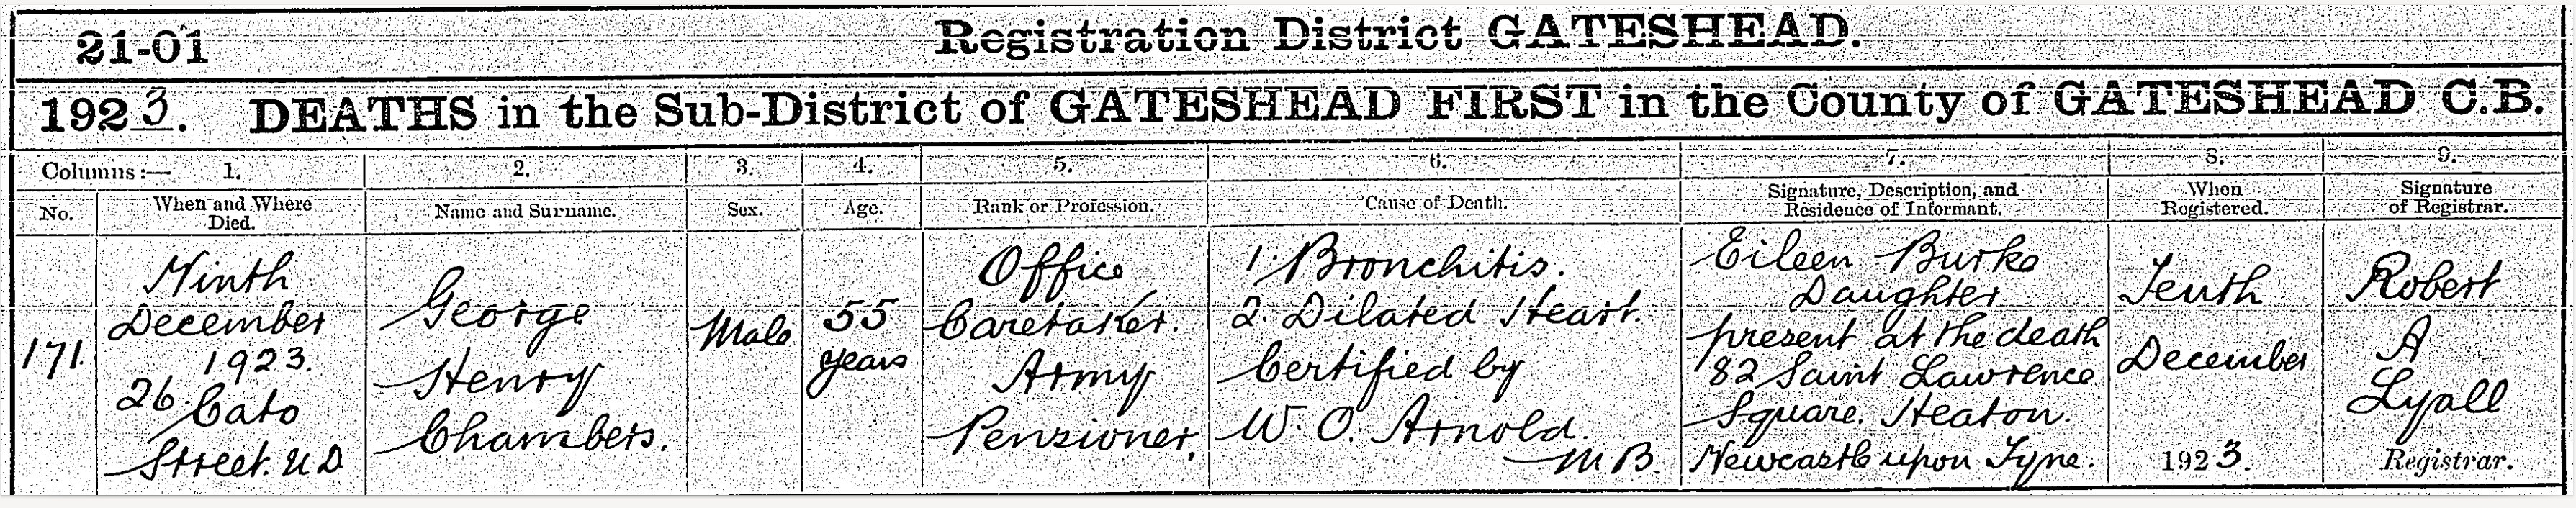 21-01 Registration District GATESHEAD.
1923. DEATHS in the Sub-District of GATESHEAD FIRST in the County of GATESHEAD C.B.
Columns:— 1. 2. 3. 4. 5. 6. 7. 8. 9.
No.
When and Where
Died.
Name and Surname.
Sex.
Age.
Rank or Profession.
Cause of Death.
Signature, Description, and
Residence of Informant.
When
Registered.
Signature
of Registrar.
171.
Ninth
December
1923.
26 Cato
Street. U D
George
Henry
Chambers.
Male
55
years
Office
Caretaker.
Army
Pensioner.
1. Bronchitis.
2. Dilated Heart.
Certified by
W. O. Arnold.
M B.
Eileen Burke
Daughter
present at the death
82 Saint Lawrence
Square. Heaton.
Newcastle upon Tyne.
Tenth
December
1923.
Robert
A
Lyall
Registrar.